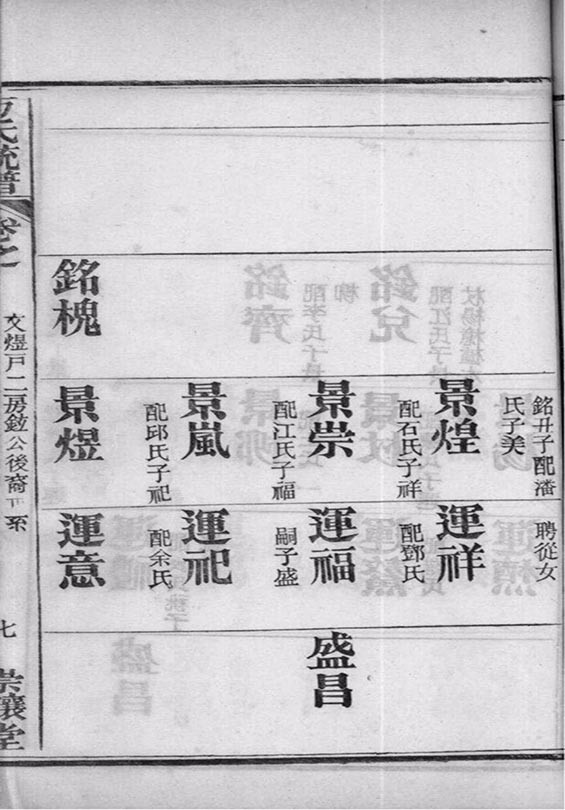 銘槐
銘丑子配潘
氏子美
景煌
配石氏子祥
景崇
配江氏子福
景嵐
配邱氏子祀
景煜
聘從女
運祥
配鄧氏
運福
嗣子盛
運祀
配余氏
運意
盛昌
氏統譜
卷之
文煜戶二房鉉公後裔 系
七
堂